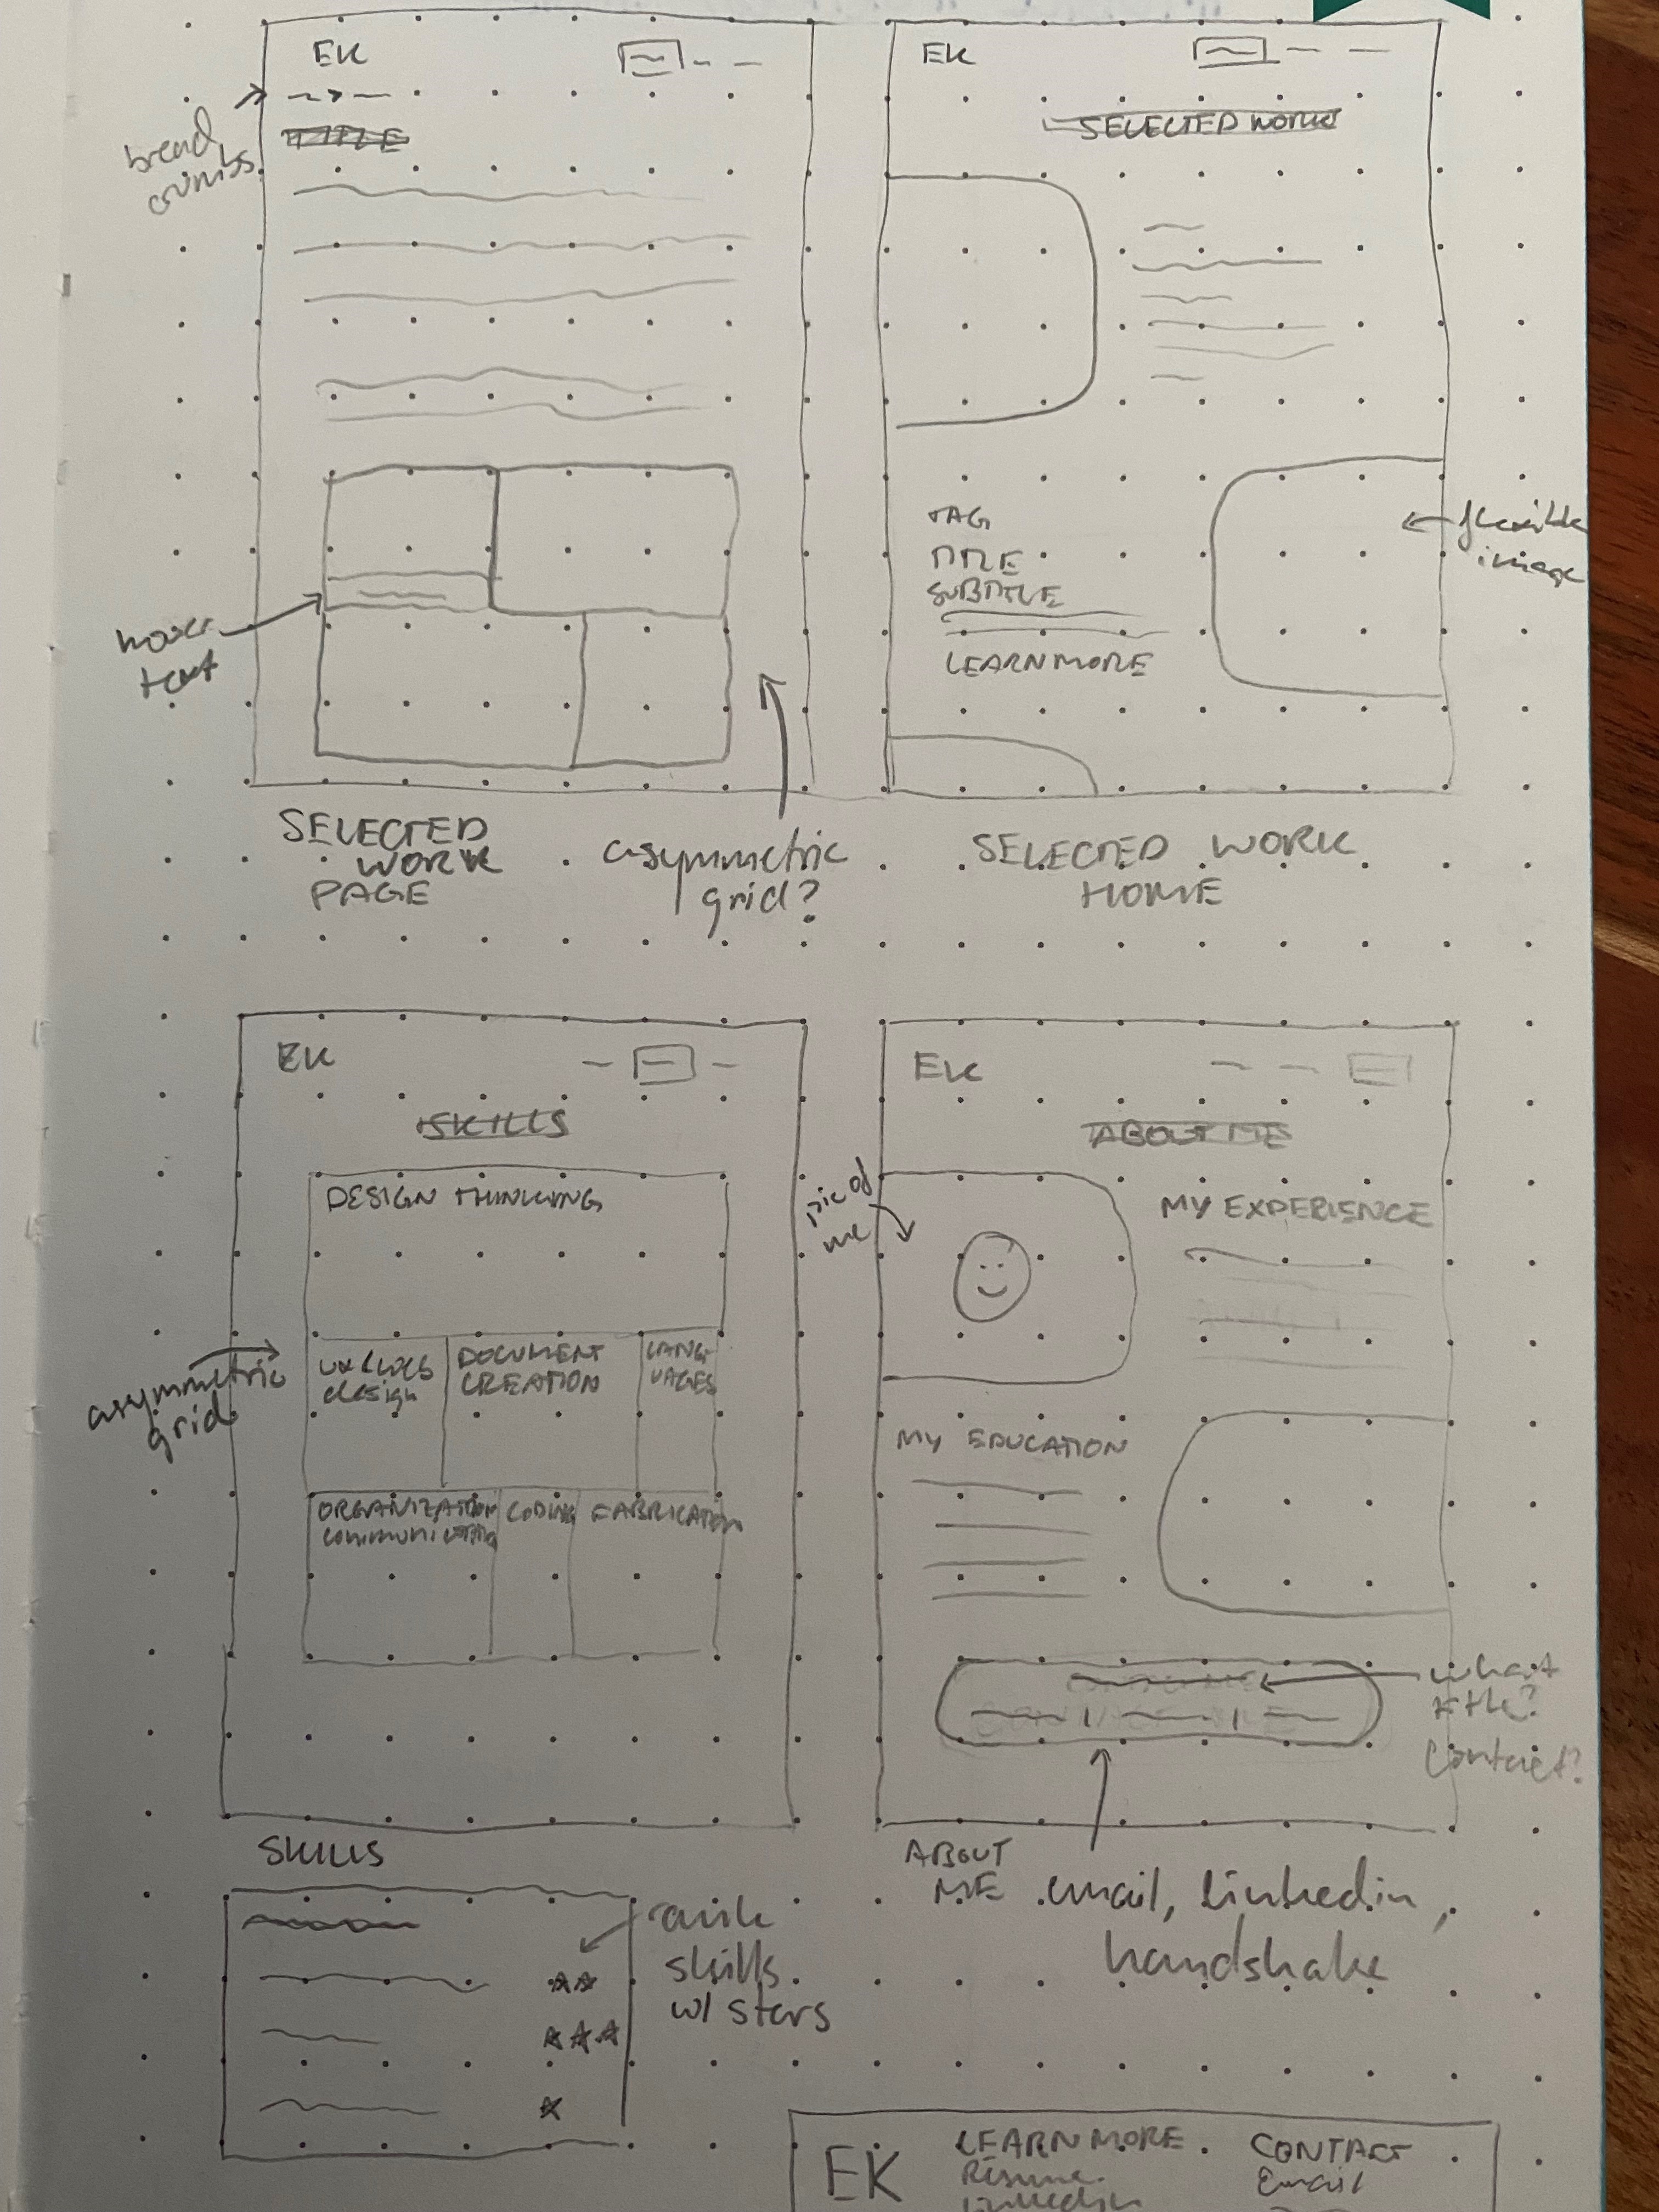 EK
bread
crumbs
TITLE
hover
text
SELECTED
WORK
PAGE
asymmetric
grid?
EK
SELECTED WORK
TAG
TITLE
SUBTITLE
LEARN MORE
flexible
image
SELECTED WORK
HOME
EK
SKILLS
DESIGN THINKING
design
DOCUMENT
CREATION
LANG-
UAGES
ORGANIZATION
communication
CODING
FABRICATION
asymmetric
grid
SKILLS
EK
ABOUT ME
pic of
me
MY EXPERIENCE
MY EDUCATION
what
title?
Contact?
ABOUT
ME
email, Linkedin,
handshake
rank
skills
w/ stars
EK
LEARN MORE
Résume
linkedin
CONTACT
Email